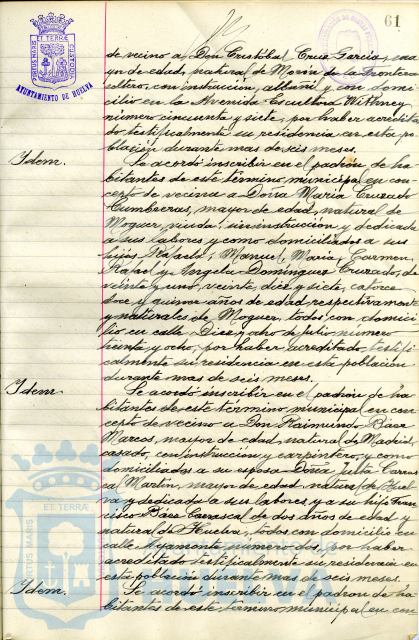 61
PORTUS MARIS ET TERRÆ CUSTODIA
AYUNTAMIENTO DE HUELVA
de vecino a Don Cristóbal Cruz García, ma
yor de edad, natural de Morón de la Frontera
soltero, con instrucción, albañil y con domi
cilio en la Avenida Escultora Withney
número cincuenta y siete, por haber acredita
do testificalmente su residencia en esta po
blación durante mas de seis meses.
Idem.
Se acordó inscribir en el padrón de ha
bitantes de este término municipal en con
cepto de vecina a Doña María Cruzado
Cumbreras, mayor de edad, natural de
Moguer, viuda, sin instrucción y dedicada
a sus labores y como domiciliados a sus
hijos Rafaela, Manuel, María, Carmen,
Rafael y Angela Domínguez Cruzado, de
veinte y uno, veinte, diez y siete, catorce
doce y quince años de edad respectivamente
y naturales de Moguer, todos con domici
lio en calle Diez y ocho de Julio número
treinta y ocho, por haber acreditado testifi
calmente su residencia en esta población
durante mas de seis meses.
Idem.
Se acordó inscribir en el padrón de ha
bitantes de este término municipal en con
cepto de vecino a Don Raimundo Báez
Marcos, mayor de edad, natural de Madrid,
casado, con instrucción y carpintero, y como
domiciliados a su esposa Doña Julia Carras
cal Martín, mayor de edad, natural de Huel
va y dedicada a sus labores, y a su hijo Fran
cisco Báez Carrascal de dos años de edad y
natural de Huelva, todos con domicilio en
calle Ayamonte número dos, por haber
acreditado testificalmente su residencia en
esta población durante mas de seis meses.
Idem.
Se acordó inscribir en el padrón de ha
bitantes de este término municipal en con